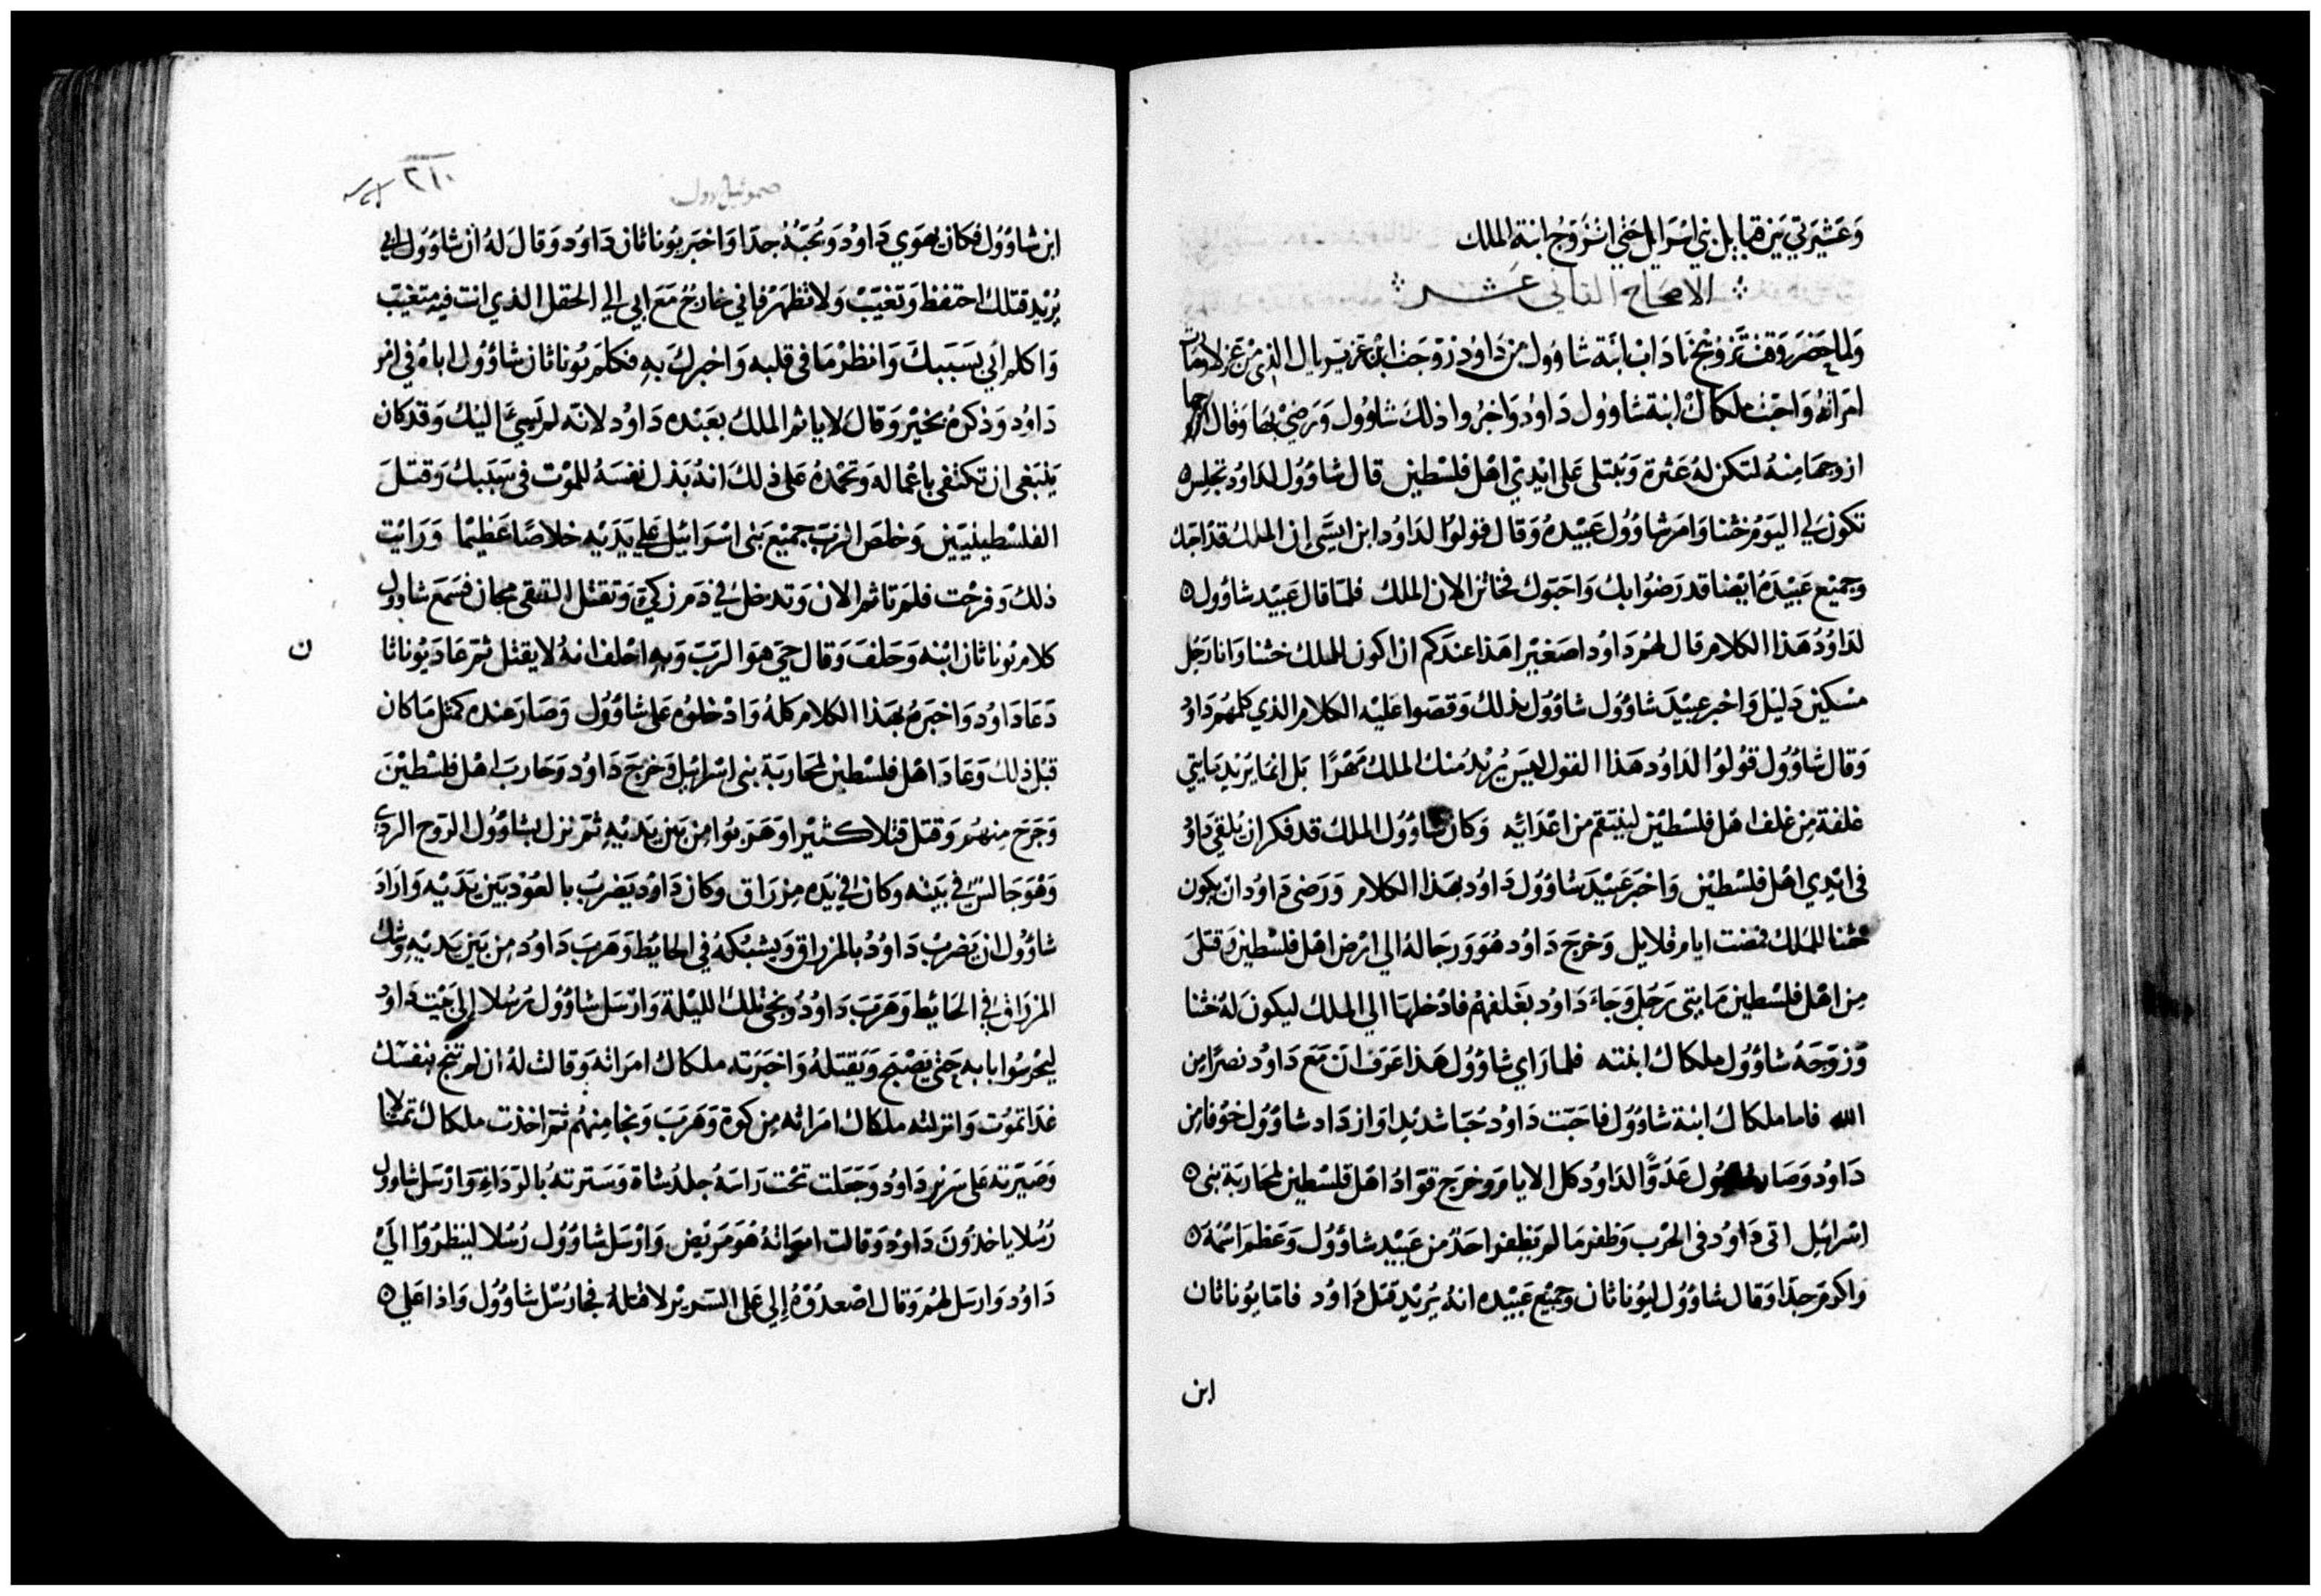 وَعَشيرَتي بَين قبايل بني اسرايل حَتي اتزَوَّج ابنة الملك
الاصحاح الثاني عشر
وَلما حضر وَقت تزويج نَاداب ابنة شاوول من دَاوُد زوّجت ابن عزيريال الذي من
امرَاتهُ وَاحبّت ملكاك ابنة شاوُول دَاوُد وَاخبرُوا ذلك شاوُول وَرَضيَ بها وَقال
ازوجهَا منهُ لتكن لهُ عَثرة وَيبتلى عَلى ايدي اهل فلسطين قال شاوُول لداوُد تجلس ه
تكون لي اليَوم ختنا وَامَر شاوُول عَبيدهُ وَقال قولوا لداوُد ابن ايسَّى إن الملك قد احبّك
وَجميع عَبيدهُ ايضا قد رَضوا بك وَاحبّوك فخاتن الان الملك فلمّا قال عَبيد شاوُول ه
لدَاوُدُ هَذا الكلام قال لهم دَاوُد اصغيرا هَذا عندكم ان اكون للملك ختنا وَانا رَجُل
مسكين دَليل وَاخبر عبيدَ شاوُول شاوُول بذلك وَقصّوا عليه الكلام الذي كلمهُم دَاوُد
وَقال شاوُول قولوُا لداوُد هَذا القول ليسَ يُريد منك الملك مَهرًا بَل انما يريد مَايتي
غلفة مِن غلف اهل فلسطين لينتقم من اعدَائِه وَكان شاوُول الملك قد فكر ان يُلقي دَاوُد
في ايدي اهل فلسطين وَاخبَر عَبيدَ شاوُول دَاوُد بهَذا الكلام وَرَضى دَاوُد ان يكون
ختنا للمَلك فمضت ايام قلايل وَخرَج دَاوُد هُوَ وَرجَالهُ الي ارض اهل فلسطين وَقتلَ
مِن اهل فلسطين مَايتى رَجل وَجاءَ دَاوُد بغلفهمُ فادخلهَا الي الملك ليكونَ لهُ ختنا
وَزوّجَهُ شاوُول ملكاك ابنته فلما رَاي شاوُول هَذا عَرَف ان مَع دَاوُد نصرًا مِن
الله فاما ملكاك ابنة شاوُول فاحبّت دَاوُد حُبّا شديدا وَازدَاد شاوُول خوُفا مِن
دَاوُد وَصَار شاوُول عَدُوًّا لداوُد كل الايام وخرَج قوّادُ اهل فلسطين لمحَاربَة بنى ه
اسْرائيل اتى دَاوُد في الحرب وَظفر مَا لم يَظفر احَدٌ من عَبيد شاوُول وَعَظم اسمُهُ ه
وَاكرم جدًا وَقال شاوُول ليوُناثان وَجميع عَبيده انهُ يُريد قتل دَاوُد فامّا يوُناثان
ابن
صموئيل اول
٢١٠
ابن شاوُول فكان يهوَي دَاوُد وَيُحبّهُ جدا وَاخبَر يوُناثان دَاوُد وَقال لهُ ان شاوُول ابي
يُريد قتلك احتفظ وَتغيّب وَلا تظهر فاني خارجُ مَع ابي الي الحقل الذي انت فيه متغيّب
وَاكلم ابي بسَببكَ وَانظر مَا في قلبه وَاخبركَ بهِ فكلم يوُناثان شاوُول اباهُ في امر
دَاوُد وَذكرهُ بخيَر وَقال لا ياثم الملك بعَبده دَاوُد لانّه لم يَسيءَ اليك وَقد كان
يَنبغى ان تكتفى باعمَاله وَتحمدهُ عَلى ذلكَ انهُ بَذل نفسَهُ للموت في سَببك وَقتلَ
الفلسطينيّين وَخلصَ الرَبّ جميع بَني اسرَائيل عَلي يَدَيْه خلاصًا عَظيمًا وَرَايت
ذلك وَفرحْت فلمَ تاثم الان وَتدخل في دَم زكيّ وَتقتل التقي مجان فسَمع شاوول
كلام يوُناثان ابنه وَحَلفَ وَقال حَيّ هوَ الرَبّ وَبهِ احْلف انهُ لا يقتل ثمّ عَادَ يوُناثا ن
دَعَا دَاوُد وَاخبَرهُ بهَذا الكلام كلهُ وَادْخلوُه عَلى شاوُول وَصَارَ عنده كمثل مَا كان
قبْل ذلك وَعَادَ اهل فلسطين لمحَاربَة بنى اسرائيل وَخرَج دَاوُد وَحَاربَ اهل فلسطينَ
وَجَرَح منهُم وَقتل قتلا كثيرا وَهَرَبوُا مِن بَين يَديْهِ ثمّ نزل بشاوُول الروح الردي
وَهوَ جَالسٌ في بَيته وَكان في يَده مزرَاق وَكان دَاوُد يَضربُ بالعوُد بَين يَدَيْه وَارَادَ
شاوُول ان يَضربْ دَاوُد بالمزراق وَيشبكهُ في الحايط وَهَربَ دَاوُد مِن بَين يَديْهِ وشك
المزرَاق في الحَايط وَهَربَ دَاوُد وَنجى تلك الليلة وَارْسَل شاوُول رُسُلا إلى بَيت دَاوُد
ليحرسُوا بابه حَتى يَصْبح وَيَقتلهُ وَاخبَرَته ملكاك امرَاته وَقالت لهُ ان لم تنج بنفسك
غدَا تموُت وَانزلته ملكاك امرَاته مِن كوة وَهَرَبَ وَنجا منهُم ثمّ اخذت ملكاك تمثالا
وَصَيّرَته عَلى سَرير دَاوُد وَجَعَلت تحْت رَاسَهُ جلد شاة وَسَتَرتهُ بالرّدَاءِ وَارْسَل شاوول
رُسُلا ياخذوُنَ دَاوُد وَقالت امرَاتهُ هُوَ مَريض وَارْسَل شاوُول رُسُلا لينظروُا الَي
دَاوُد وَارسَل لهُم وَقال اصْعدوُهُ إلي عَلى السَرير لاقتلهُ فجا رُسُل شاوُول وَاذا عَلي ه